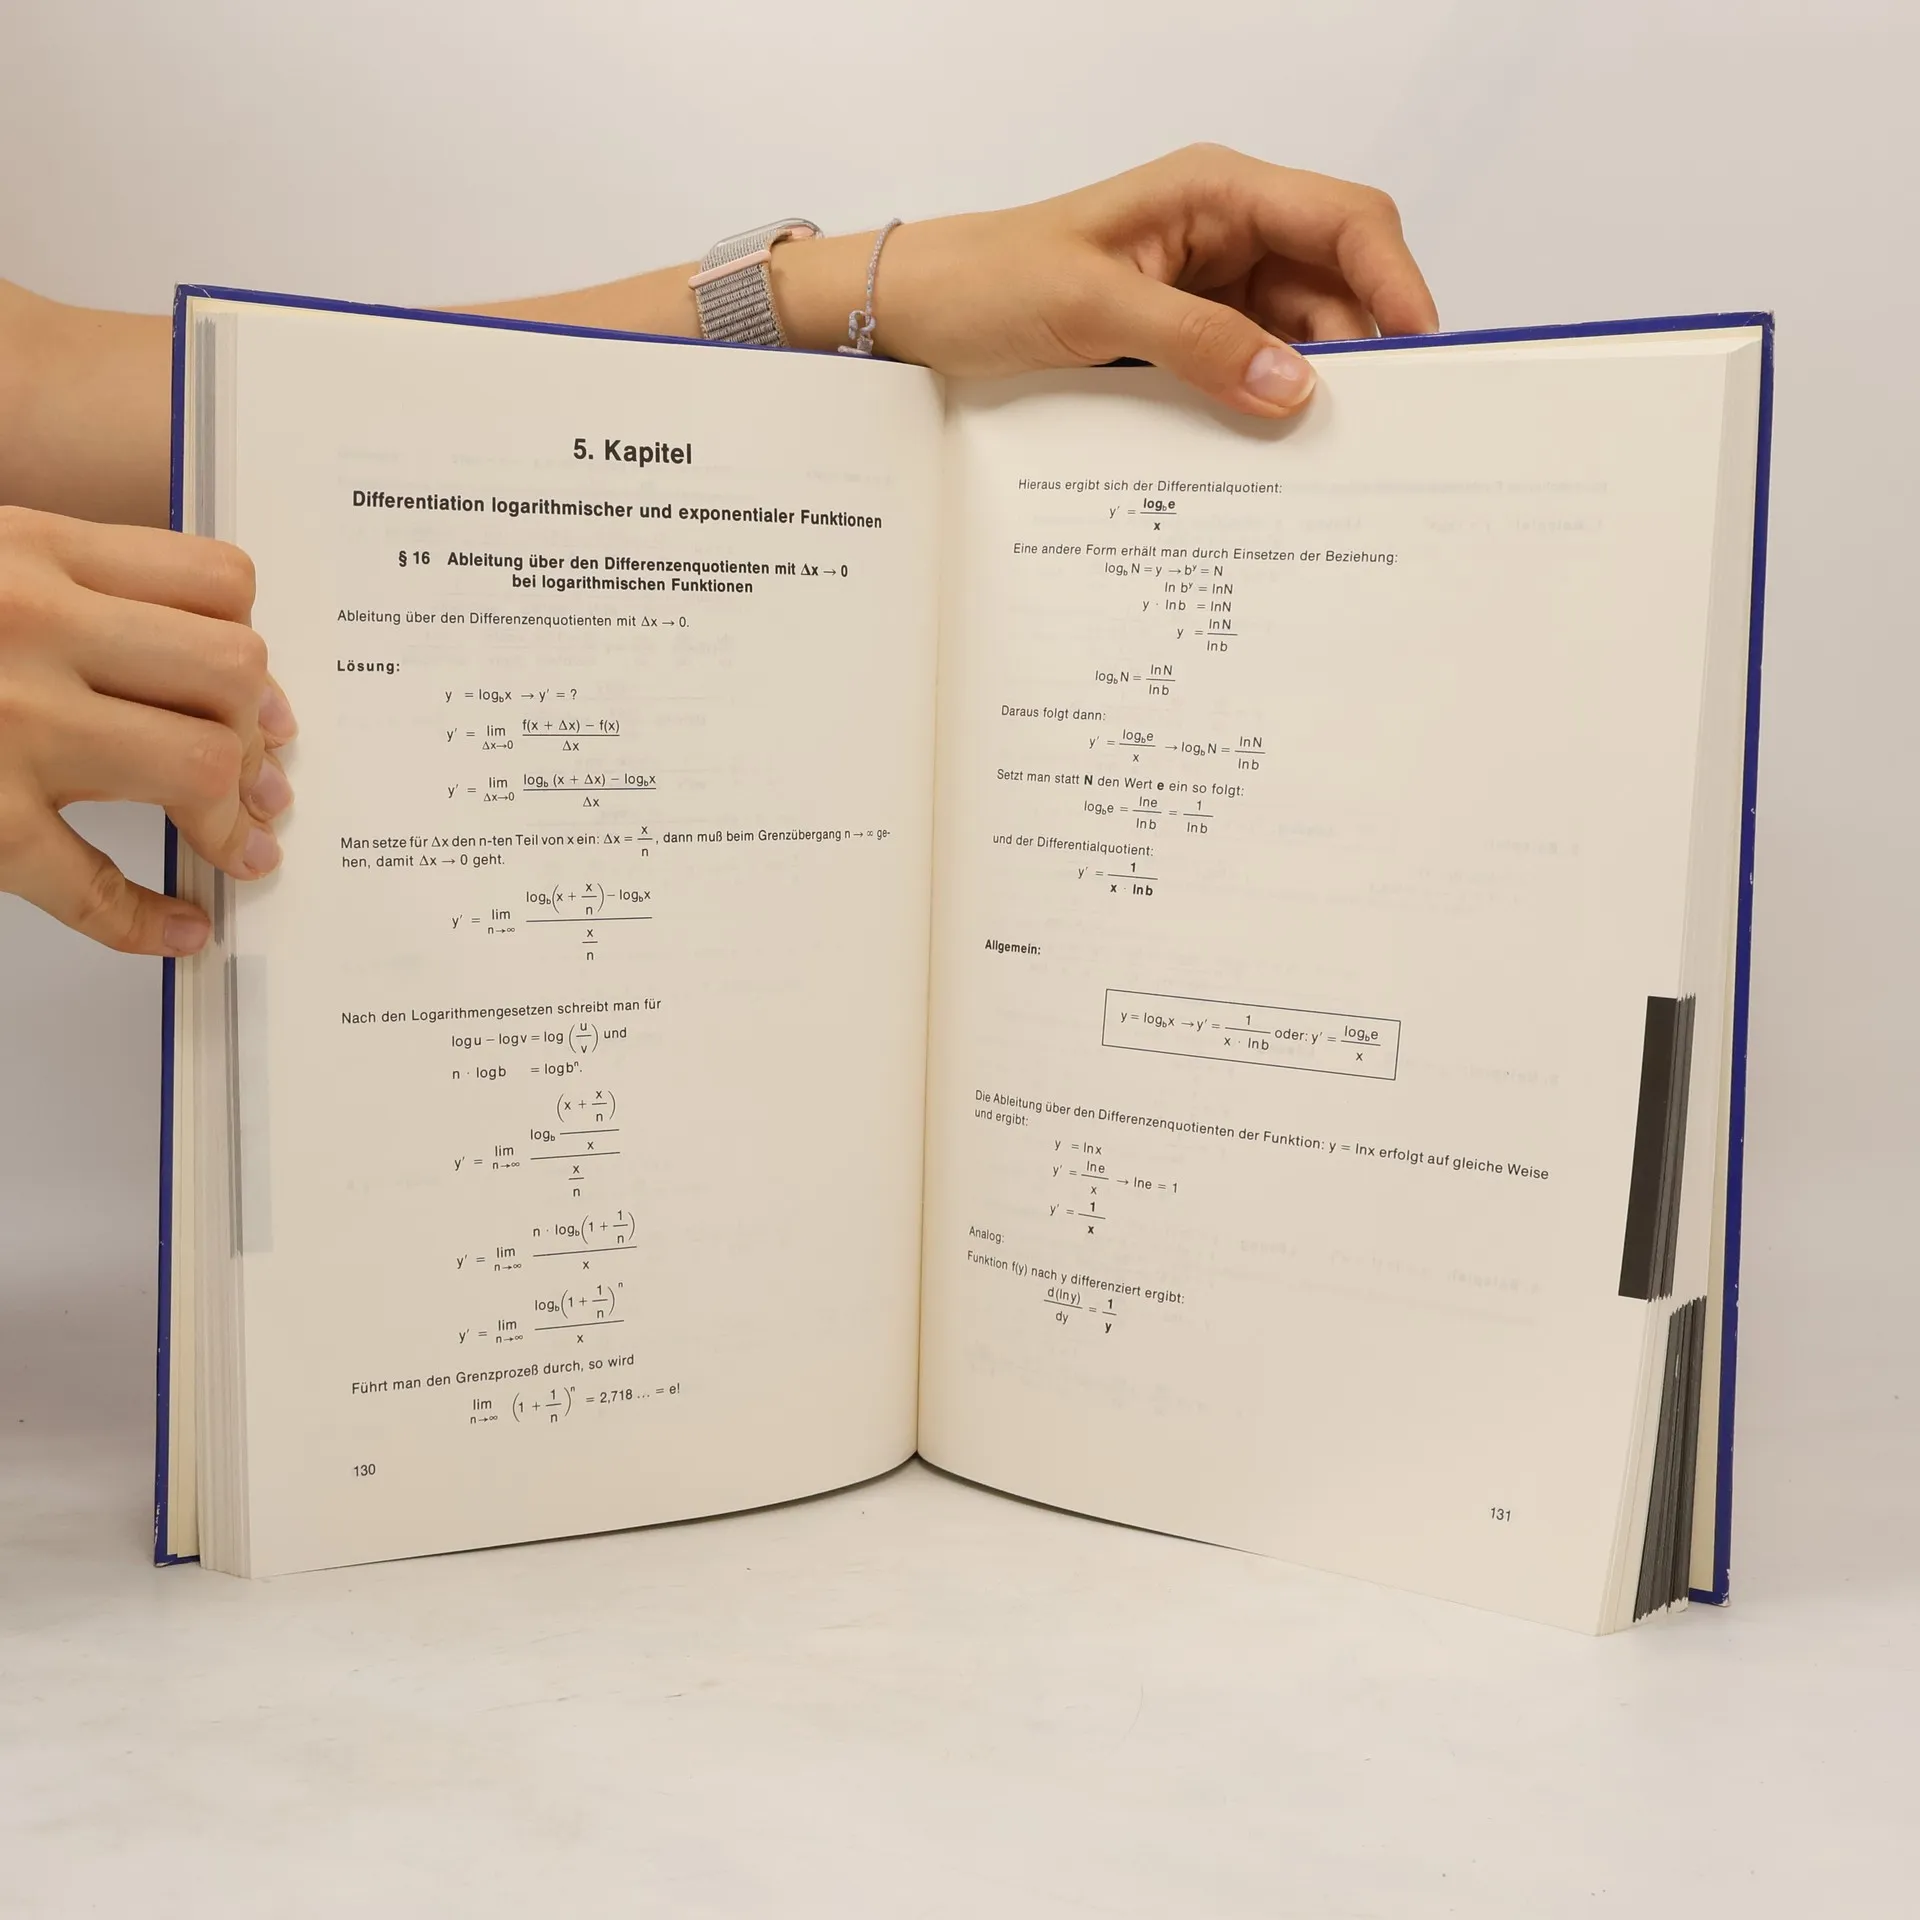 5. Kapitel
Differentiation logarithmischer und exponentialer Funktionen
§ 16 Ableitung über den Differenzenquotienten mit Δx → 0
bei logarithmischen Funktionen
Ableitung über den Differenzenquotienten mit Δx → 0.
Lösung:
y = log_b x → y' = ?
y' = lim_{Δx→0} (f(x + Δx) − f(x)) / Δx
y' = lim_{Δx→0} (log_b (x + Δx) − log_b x) / Δx
Man setze für Δx den n-ten Teil von x ein: Δx = x/n, dann muß beim Grenzübergang n → ∞ ge-
hen, damit Δx → 0 geht.
y' = lim_{n→∞} (log_b(x + x/n) − log_b x) / (x/n)
Nach den Logarithmengesetzen schreibt man für
log u − log v = log (u/v) und
n · log b = log bⁿ.
y' = lim_{n→∞} (log_b ((x + x/n) / x)) / (x/n)
y' = lim_{n→∞} (n · log_b(1 + 1/n)) / x
y' = lim_{n→∞} (log_b(1 + 1/n)ⁿ) / x
Führt man den Grenzprozeß durch, so wird
lim_{n→∞} (1 + 1/n)ⁿ = 2,718 ... = e!
130
Hieraus ergibt sich der Differentialquotient:
y' = log_b e / x
Eine andere Form erhält man durch Einsetzen der Beziehung:
log_b N = y → b^y = N
ln b^y = lnN
y · lnb = lnN
y = lnN / lnb
log_b N = lnN / lnb
Daraus folgt dann:
y' = log_b e / x → log_b N = lnN / lnb
Setzt man statt N den Wert e ein so folgt:
log_b e = lne / lnb = 1 / lnb
und der Differentialquotient:
y' = 1 / (x · lnb)
Allgemein:
y = log_b x → y' = 1 / (x · lnb) oder: y' = log_b e / x
Die Ableitung über den Differenzenquotienten der Funktion: y = lnx erfolgt auf gleiche Weise
und ergibt:
y = lnx
y' = lne / x → lne = 1
y' = 1 / x
Analog:
Funktion f(y) nach y differenziert ergibt:
d(lny) / dy = 1 / y
131